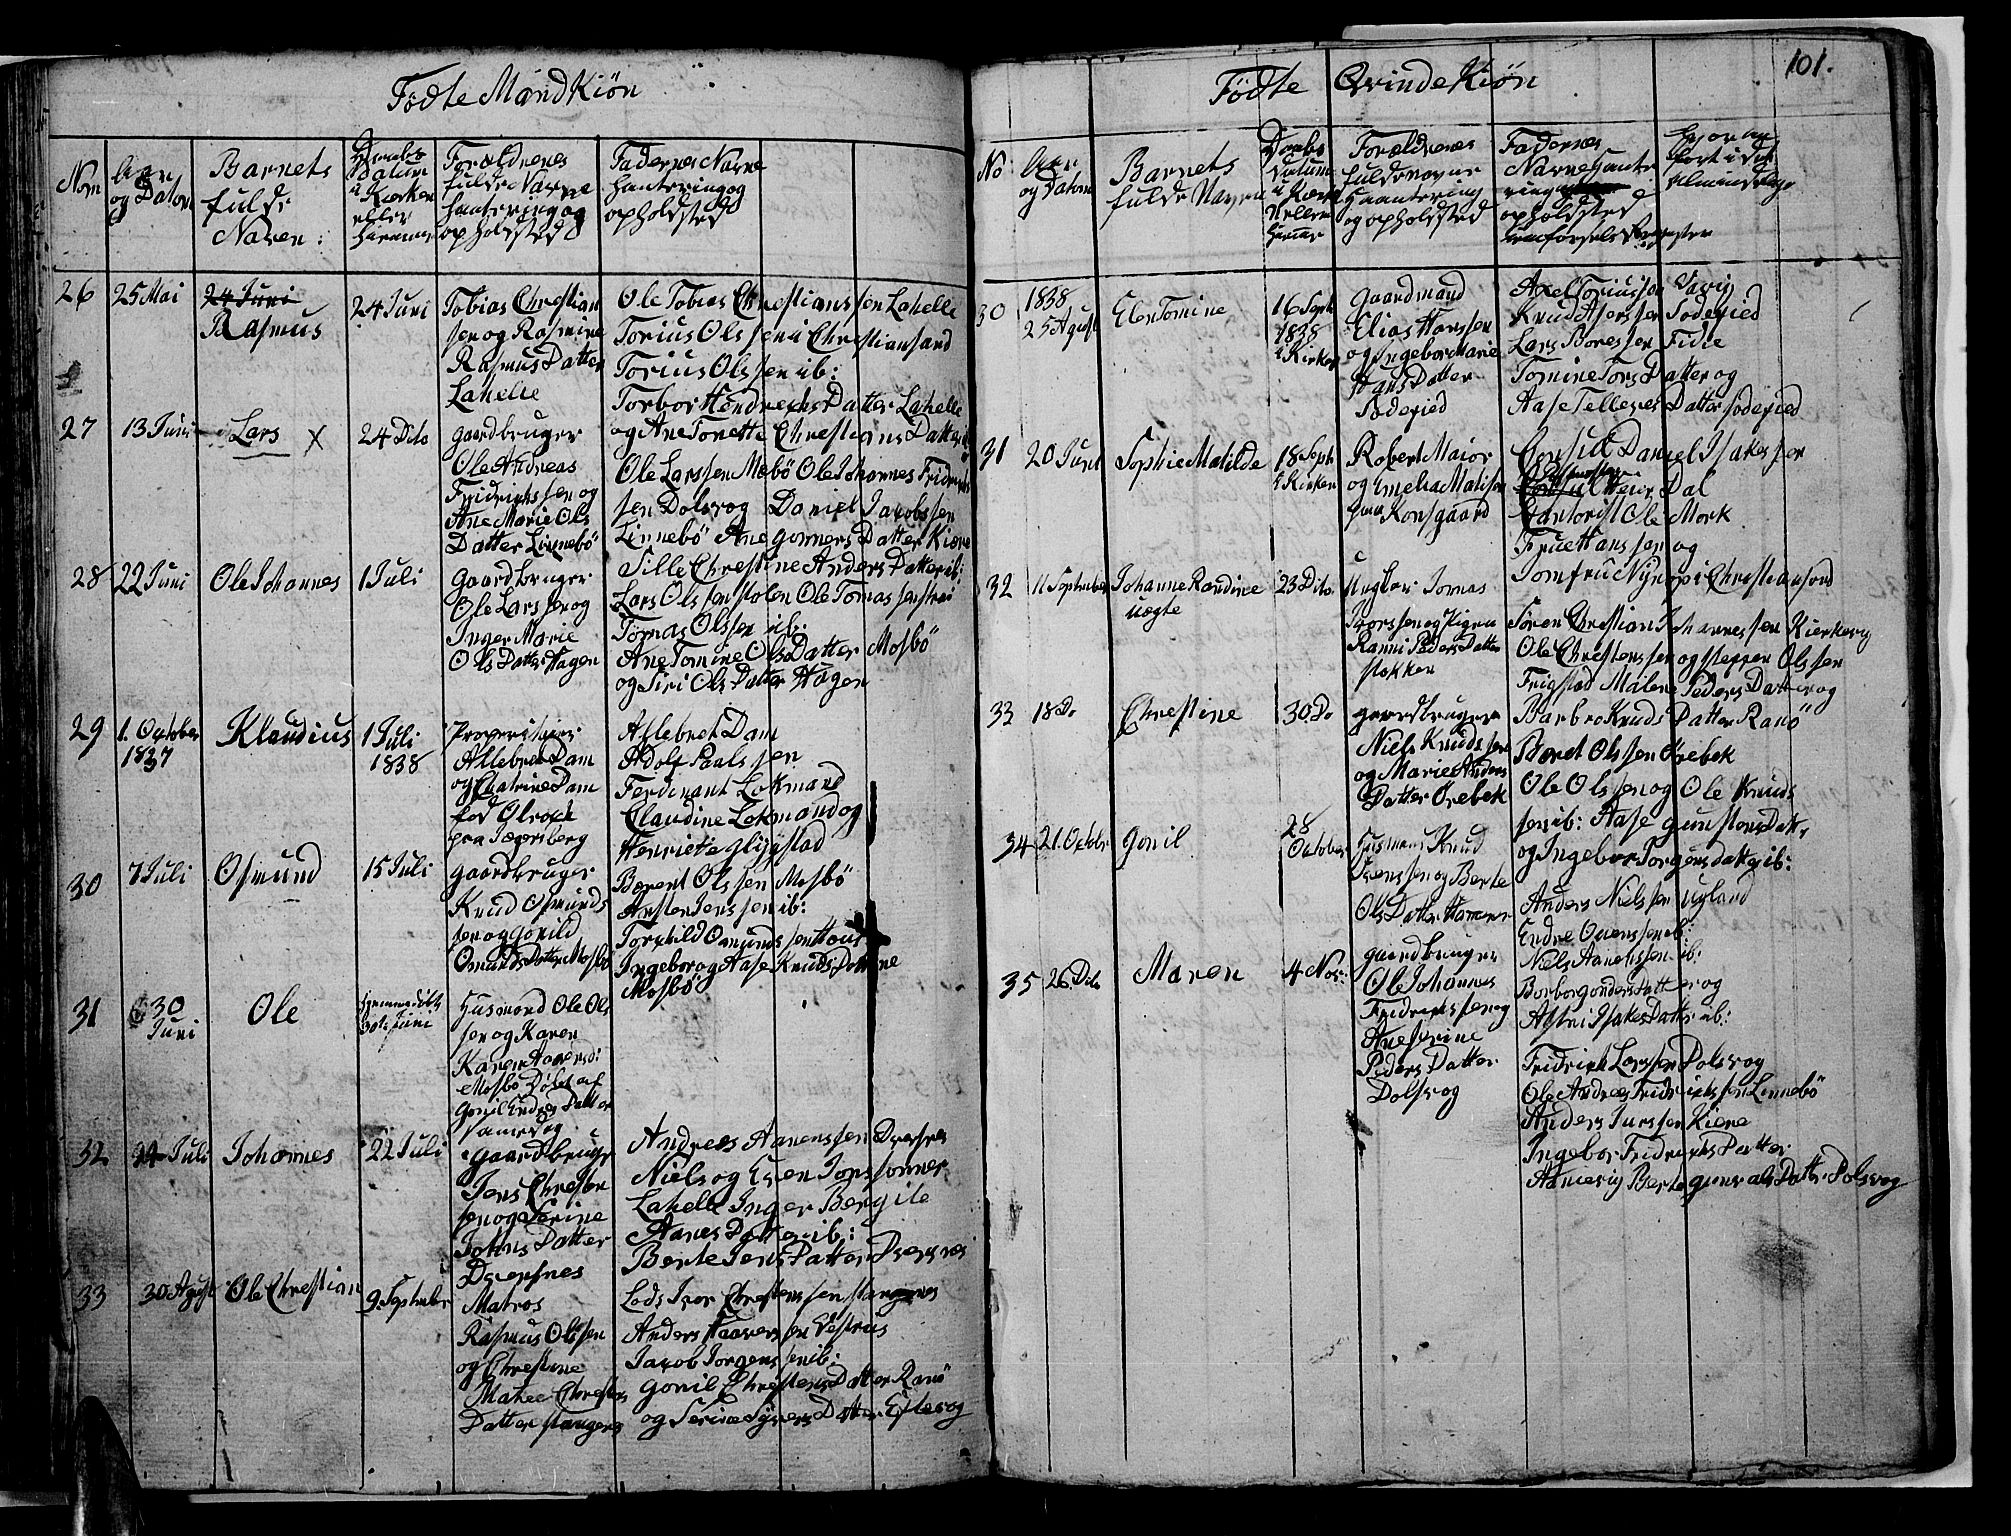 Fødte Mandkiøn
Nom
Aar og Datom
Barnets fulde Naven:
Daabs Datum i Kirken eller hiemme
Forældrenes fulde Navne hantering og opholdsted
Fadernes Navne hantering og opholdsted
26
25 Mai
24 Juni
Rasmus
24 Juni
Tobias Chrestian
sen og Rasmine
Rasmus Datter
Lahelle
Ole Tobias Chrestianssen Lahelle
Torius Olssen i Christiansand
Torius Olssen ib:
Torbor Hendrichs Datter Lahelle
og Ane Tonette Chrestians Datter
27
13 Juni
Lars X
24 Dito
gaardbruger
Ole Andreas
Fridrichssen og
Ane Marie Ols
Datter Linnebö
Ole Larssen Mobö Ole Johannes Fridrich
sen Dolsvog Daniel Jacobssen
Linnebö Ane gonners Datter Kiære
Sille Chrestine Anders Datter ib:
28
22 Juni
Ole Johannes
1 Juli
gaardbruger
Ole Larssen og
Inger Marie
Ols Datter Hagen
Lars Olssen stolen Ole Tomassen strai
Tomas Olssen ib:
Ane Tomine Ols Datter Mosbö
og Siri Ols Datter Hagen
29
1. October
1837
Klaudius
1 Juli
1838
Allebret Dam
og Chatrine Dam
fra Jægersberg
Allebret Dam
Adolf Paulssen
Ferdinant Lokmand
Claudine Lokmand og
Henriete
30
7 Juli
Osmund
15 Juli
gaardbruger
Knud Osmunds
sen og gonild
Omunds Datter Mosbö
Barent Olssen Mosbö
Ansten Jenssen ib:
Torkild Omundssen Hous
Ingebor og Aase Knuds Dattrne
Mosbö
31
30
Juni
Ole
hiemmedöbt
30te Juni
Husmand Ole Ols
sen og Karen
Karen Aanensd:
Mosbö Döbt af
gonil Endres Datter
samested
32
22 Juli
Johannes
22 Juli
gaardbruger
Jens Christen
sen og Serine
Johns Datter
Dversnes
Andreas Aanenssen Dversnes
Niels og Even Jonssonner
Lahelle Inger Bergite
Aanes Datter ib:
Berte Jens Datter Dversnes
33
30 August
Ole Chrestian
9 September
Matros
Rasmus Olssen
og Chrestine
Malee Chrestens
Datter stangenes
Lods Ivor Chrestenssen stangenes
Anders Haaverssen Vestrus
Jacob Jorgenssen ib:
gonil Chrestens Datter Ranö
og Serine Syvers Datter Eftevog
Fødte Qvinde Kiön
101.
No
Aar og Datom
Barnets fulde Navn
Daabs Datum i Kirken eller hiemme
Forældrenes fulde navne Haantering og opholdsted
Fadernes Navne hanteringog opholdsted
henforsels Register
fort i det almindelige
30
1838
25 August
Elen Tomine
16 Septb
1838
i Kirken
Gaardmand
Elias Hanssen
og Ingebor Marie
Hans Datter
Sodegied
Axel Toriussen Vavig
Knud Aserssen Sodegied
Lars Boressen Fidie
Tomine Tors Datter og
Aase Tellefs Datter sodegied
31
20 Juni
Sophie Matilde
18 Septb
i Kirken
Robert Maior
og Emelia Matisen
Konsgaard
Consul Daniel Isakssen
Dal
Cantorist Ole Mork
Frue Hanssen og
Jomfru Nyrop i Christiansand
32
11 September
Johanne Randine
uægte
23 Dito
Ungkar Jornas
Torssen og Pigen
Ranni Peders Datter
stokken
Søren Chrestian Johannessen Kierkevig
Ole Chrestenssen og steffen Olssen
Frigstad Malene Peders Datter og
Barbro Knuds Datter Ranö
33
18 Do
Chrestine
30 Do
gaardbruger
Niels Knudssen
og Marie Anders
Datter Orebek
Barct Olssen Orebek
Ole Olssen og Ole Knuds
sen ib: Aase gunstens Dattr
og Ingebor Torgers datt ib:
34
21. Octobr
Gonil
28
October
Husmand Knud
Svenssen og Berte
Ols Datter Hammer
Anders Nielssen Ugland
Endre Ovenssen ib:
Niels Aanenssen ib:
Borbor gonders Datter og
Astri Isakes Dattr ib:
35
26 Dito
Maren
4 Nov:
gaardbruger
Ole Johannes
Fredrichssen og
Ane Serine
Peders Datter
Dolsvog
Fridrich Larssen Dolsvog
Ole Andreas Fridrichssen Linnebö
Anders Jurssen Kiere
Ingebor Fridrichs Datter
Berte gunvals Datter Dolsvog